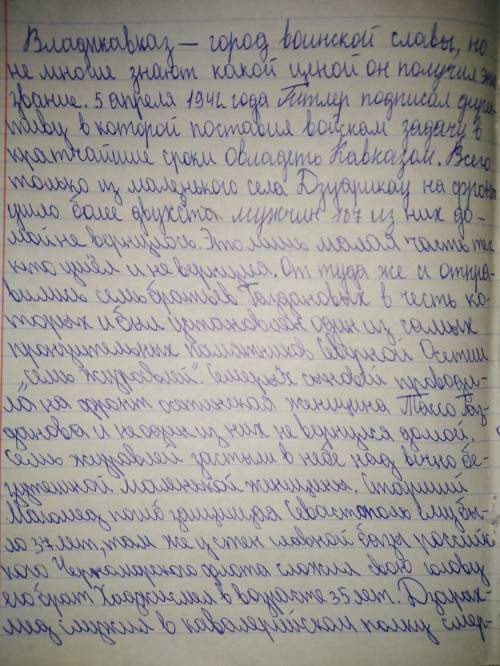 Владикавказ — город воинской славы, но
не многие знают какой ценой он получил это
звание. 5 апреля 1942 года Гитлер подписал дирек-
тиву в которой поставил войскам задачу в
кратчайшие сроки овладеть Кавказом. Всего
только из маленького села Дзуарикау на фронт
ушло более двухста мужчин 87 из них до-
мой не вернулось. Это лишь малая часть тех
кто ушёл и не вернулся. От туда же и отпра-
вились семь братьев Газдановых в честь ко-
торых и был установлен один из самых
пронзительных памятников Северной Осетии
"семь журавлей". Семерых сыновей проводи-
ла на фронт осетинская женщина Тассо Газ-
данова и не один из них не вернулся домой.
Семь журавлей застыли в небе над вечно бе-
зутешной маленькой женщины. Старший
Магомед погиб защищая Севастополь ему бы-
ло 37 лет, там же у стен главной базы россий-
кого Черноморского флота сложил свою голову
его брат Хаджислам в возрасте 35 лет. Дзарах-
мед служил в кавалерийском полку смер-